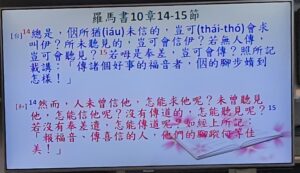 羅馬書10章14-15節
[台]14總是，個所猶(iáu)未信的，豈可(thái-thó)會求
叫伊？所未聽見的，豈可會信伊？若無人傳，
豈可會聽見？15若呣是奉差，豈可會傳？照所記
載講：「傳諸個好事的福音者，個的腳步嬌到
怎樣！」
[和]14然而，人未曾信他，怎能求他呢？未曾聽見
他，怎能信他呢？沒有傳道的，怎能聽見呢？15
若沒有奉差遣，怎能傳道呢？如經上所記：
「報福音、傳喜信的人，他們的腳蹤何等佳
美！」